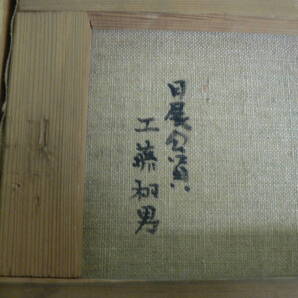 日展会員
工藤和男